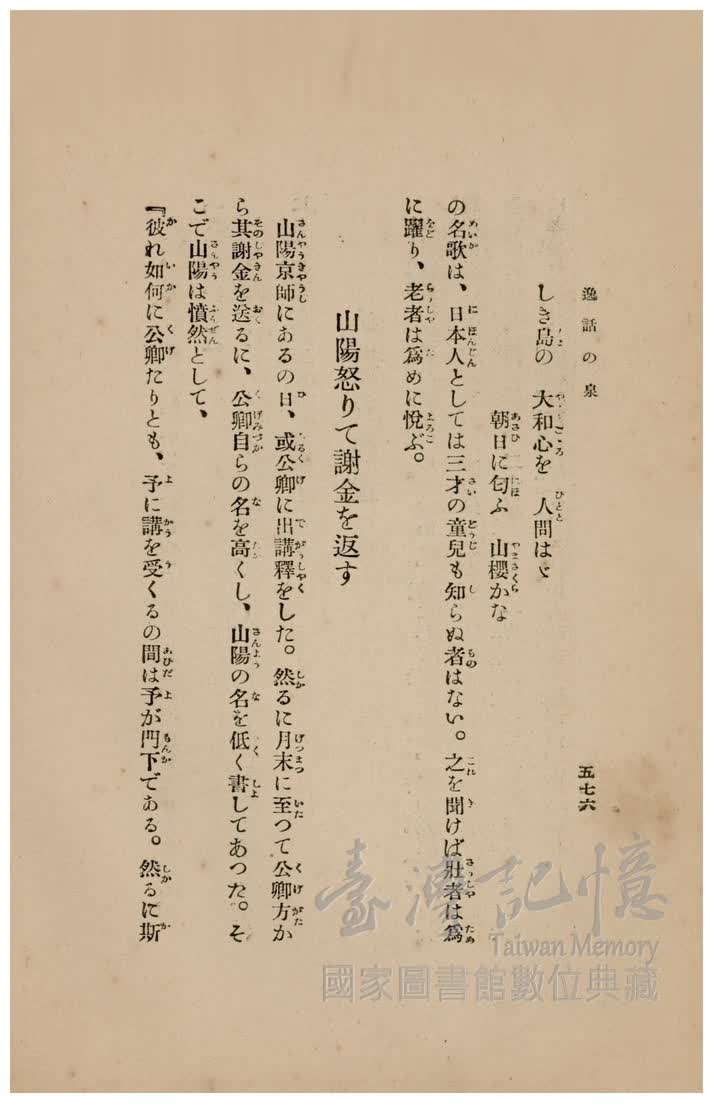 逸話の泉
五七六
しき島の　大和心を　人問はゞ
朝日に匂ふ　山櫻かな
の名歌は、日本人としては三才の童兒も知らぬ者はない。之を聞けば壯者は爲
に躍り、老者は爲めに悅ぶ。
山陽怒りて謝金を返す
山陽京師にあるの日、或公卿に出講釋をした。然るに月末に至つて公卿方か
ら其謝金を送るに、公卿自らの名を高くし、山陽の名を低く書してあつた。そ
こで山陽は憤然として、
『彼れ如何に公卿たりとも、予に講を受くるの間は予が門下である。然るに斯
臺灣記憶
Taiwan Memory
國家圖書館數位典藏